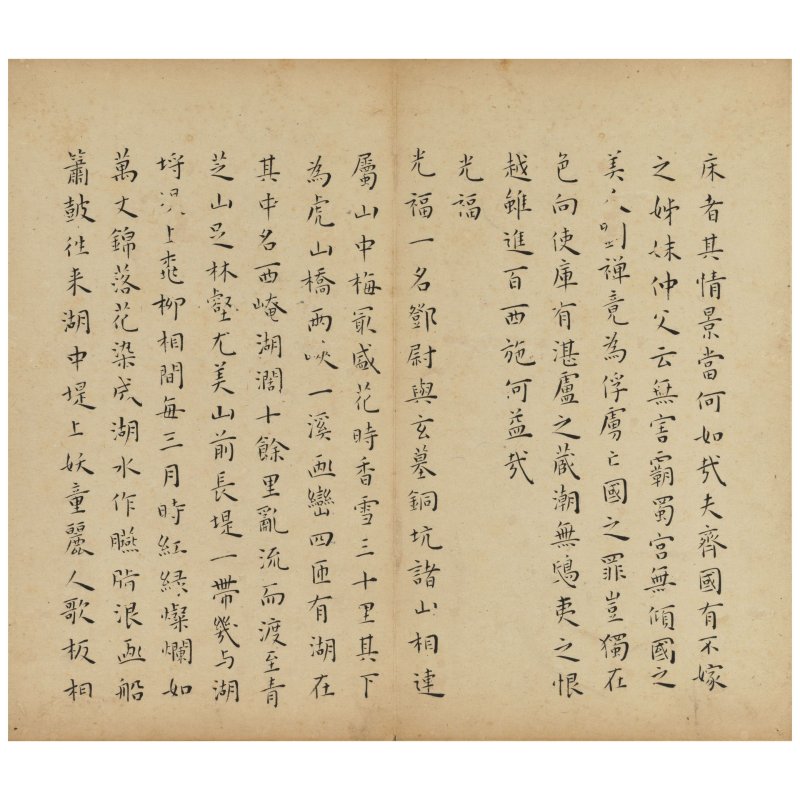 床者其情景當何如哉夫齊國有不嫁
之姊妹仲父云無害霸蜀宮無傾國之
美人劉禪竟為俘虜亡國之罪豈獨在
色向使庫有湛盧之藏潮無鴟夷之恨
越雖進百西施何益哉
光福
光福一名鄧尉與玄墓銅坑諸山相連
屬山中梅最盛花時香雪三十里其下
為虎山橋兩峽一溪畫巒四匝有湖在
其中名西崦湖濶十餘里亂流而渡至青
芝山足林壑尤美山前長堤一帶幾与湖
埒堤上桃柳相間每三月時紅綠燦爛如
萬丈錦落花染成湖水作臙脂浪畫船
簫鼓往来湖中堤上妖童麗人歌板相